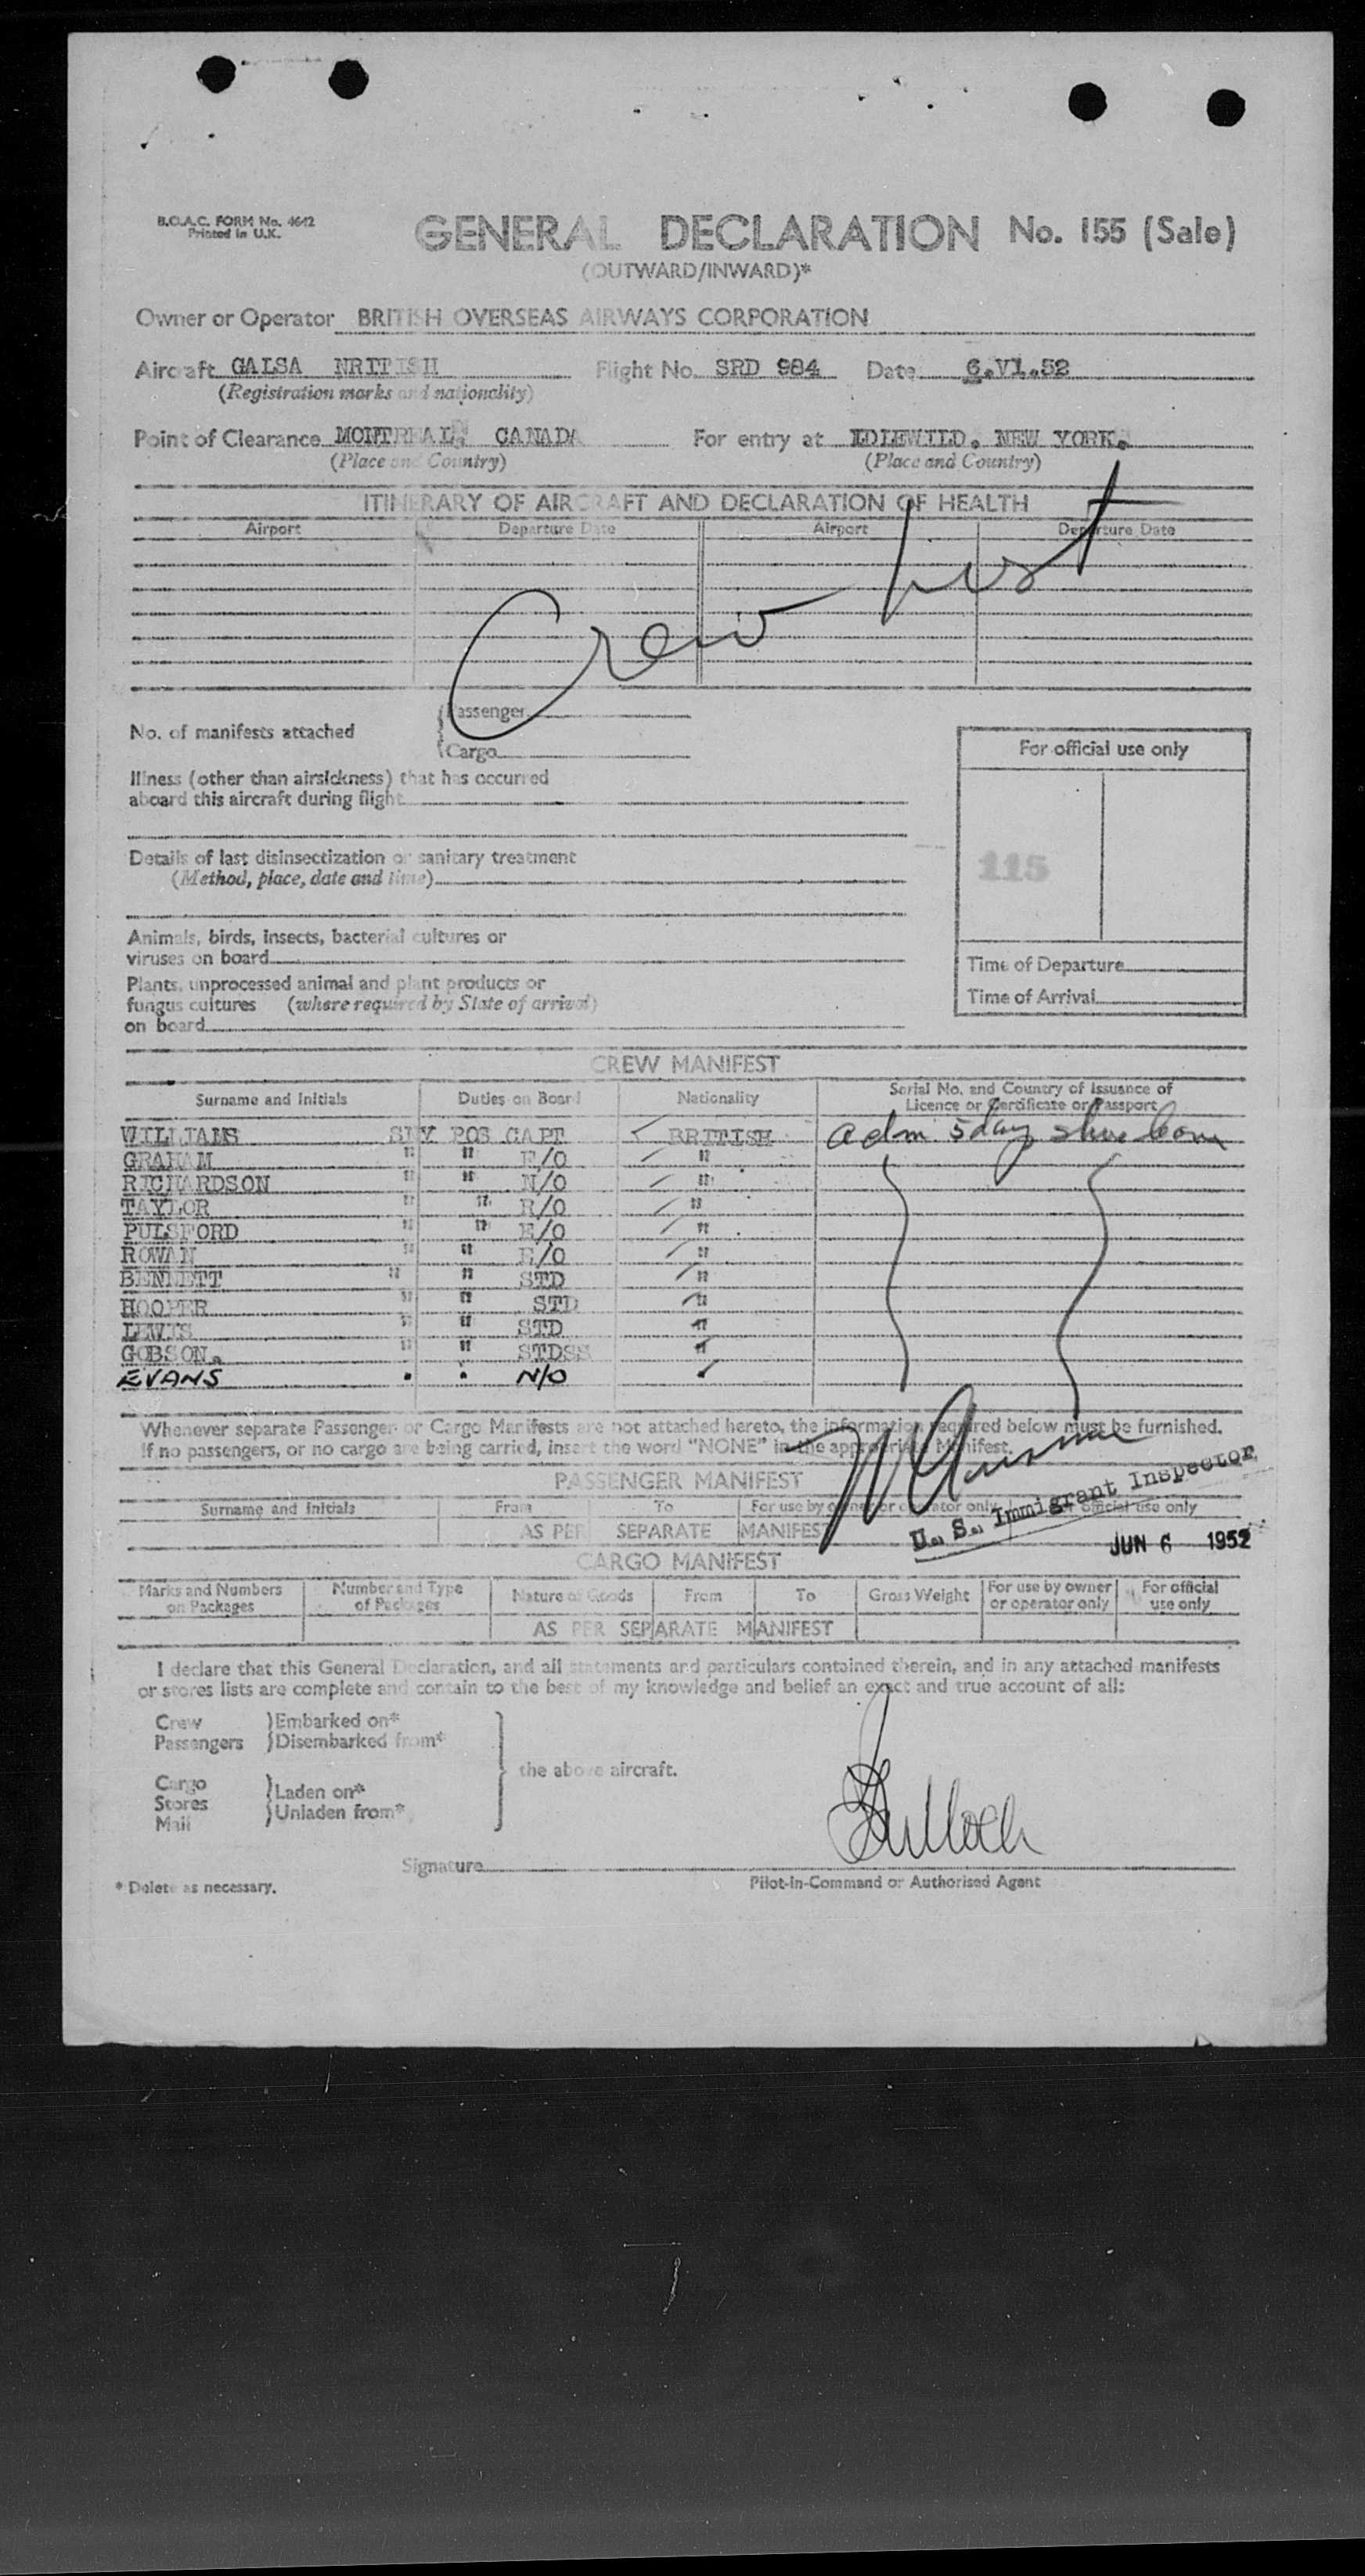 B.O.A.C. FORM No. 4642
Printed in U.K.
GENERAL DECLARATION No. 155 (Sale)
(OUTWARD/INWARD)*
Owner or Operator BRITISH OVERSEAS AIRWAYS CORPORATION
Aircraft GALSA NRITISH Flight No. SRD 984 Date 6.VI.52
(Registration marks and nationality)
Point of Clearance MONTREAL, CANADA For entry at IDLEWILD. NEW YORK.
(Place and Country) (Place and Country)
ITINERARY OF AIRCRAFT AND DECLARATION OF HEALTH
Airport Departure Date Airport Departure Date
Crew List
No. of manifests attached
Passenger
Cargo
For official use only
Illness (other than airsickness) that has occurred
aboard this aircraft during flight
Details of last disinsectization or sanitary treatment
(Method, place, date and time)
115
Animals, birds, insects, bacterial cultures or
viruses on board
Time of Departure
Plants, unprocessed animal and plant products or
fungus cultures (where required by State of arrival)
on board
Time of Arrival
CREW MANIFEST
Surname and Initials Duties on Board Nationality Serial No. and Country of Issuance of
Licence or Certificate or Passport
WILLIAMS SLY POS CAPT BRITISH adm 5 day shore leave
GRAHAM " " F/O "
RICHARDSON " " N/O "
TAYLOR " " R/O "
PULSFORD " " E/O "
ROWAN " " E/O "
BENNETT " " STD "
HOOPER " " STD "
LEWIS " " STD "
GOBSON. " " STDSS "
EVANS " " N/O "
Whenever separate Passenger or Cargo Manifests are not attached hereto, the information required below must be furnished.
If no passengers, or no cargo are being carried, insert the word "NONE" in the appropriate Manifest.
PASSENGER MANIFEST
Surname and Initials From To For use by owner or operator only For official use only
AS PER SEPARATE MANIFEST
U. S. Immigrant Inspector
JUN 6 1952
CARGO MANIFEST
Marks and Numbers on Packages Number and Type of Packages Nature of Goods From To Gross Weight For use by owner or operator only For official use only
AS PER SEPARATE MANIFEST
I declare that this General Declaration, and all statements and particulars contained therein, and in any attached manifests
or stores lists are complete and contain to the best of my knowledge and belief an exact and true account of all:
Crew )Embarked on*
Passengers )Disembarked from*
the above aircraft.
Cargo )Laden on*
Stores
Mail )Unladen from*
Signature
Pilot-in-Command or Authorised Agent
* Delete as necessary.